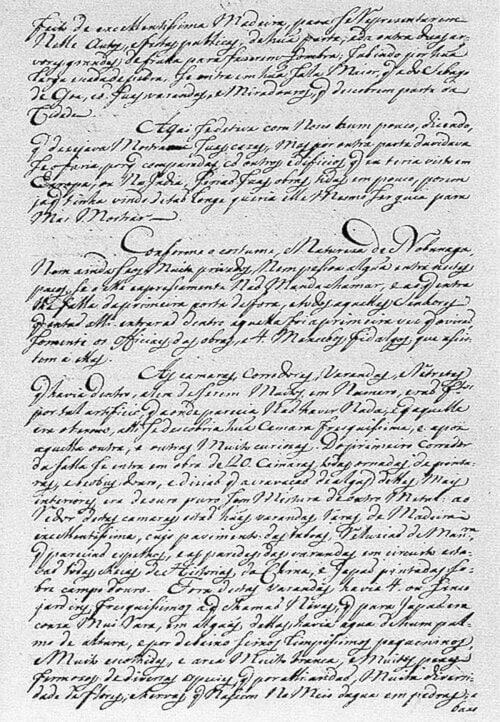 feito de excellentissima Madeira, para se representarem
Nelle Autos, e festas publicas, de huã parte, e da outra duas ar-
vores grandes de fruta para fazerem sombra, subindo por huã
larga escada de pedra, se entra em huã salla Maior, q̃ a do Sabayo
de Goa, cõ suas varandas, e Miradouros, q̃ descobrem parte da
Cidade.
Aqui se deteve com Nosco hum pouco, dizendo,
q̃ desejava Mostrar suas cazas, Mas por outra parte duvidava
se o faria, porq̃ comparadas cõ outros edificios, q̃ eu teria visto em
Europa, ou Na India, serião suas obras tidas em pouco, porem
ja q̃ tinha vindo de tão longe queria elle Mesmo ser guia para
Mas Mostrar.
Conforme o costume, e Natureza de Nobunaga,
Nem ainda seos Muito privados, Nem pessoa alguã entra nestes
paços, se elle expressamente Não Manda chamar, e aos q̃ entrão
lhe falla da primeira porta de fora, e todos aquelles Senhores
q̃ então alli entrarão dentro aquella foi a primeira vez q̃ o virão
somente os officiaes das obras, e 4. Mancebos fidalgos, que assis-
tem a elles.
As camaras, Corredores, Varandas, e Retretes
q̃ havia dentro, alem de serem Muitos em Numero, erão feitos
por tal artificio, q̃ aonde parecia Não haver Nada, e q̃ aquelle
era o termo, alli se descobria huã Camara fresquissima, e apos
aquella outra, e outras Muito curiosas. Do primeiro Corredor
da salla se entra em obra de 20. Camaras, todas ornadas de pontu-
ras, e biobus d'ouro, e dizião q̃ a cravação de alguãs dellas Mais
interiores era de ouro puro sem Mistura de outro Metal. ao
redor destas camaras estão huãs varandas rasas, de Madeira
excellentissima, cujo pavimento das taboas, reluzia de Manr.ª
q̃ parecião espelhos, e as paredes das varandas em circuito esta-
vão todas cheas de Historias, da China, e Japão pintadas so-
bre campo d'ouro. Fora destas varandas, havia 4. ou sinco
jardins, fresquissimos a q̃ chamão Nivas, q̃ para Japão era
couza Mui rara, em alguns delles, havia agua d'hum pal-
mo de altura, e por debaixo seixos limpissimos pequeninos,
e Muito escolhidos, e area Muito branca, e Muitos peixes
fermosos, de diversas especies q̃ por alli nadavão, Muita diversi-
dade de flores, e hervas, q̃ Nascem No Meio d'agua em pedras, e
baxo